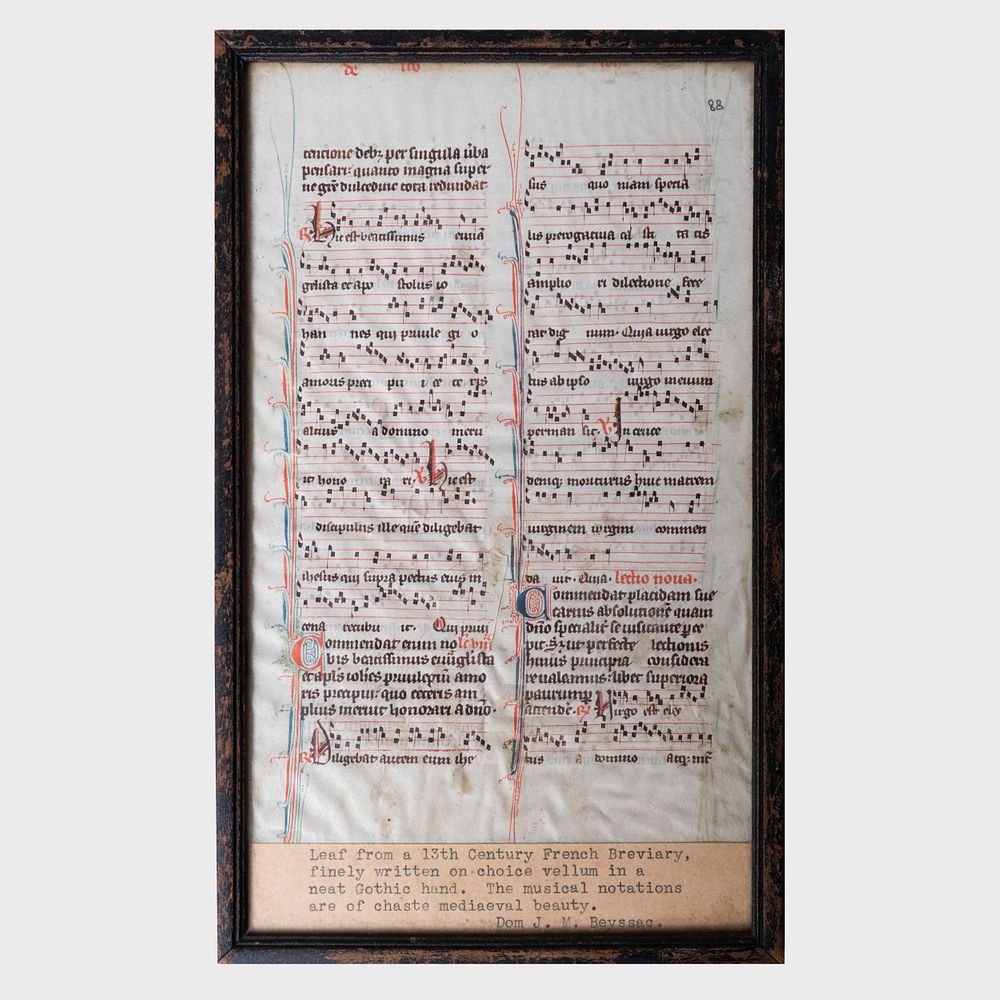 88
tencione debꝫ per singula ūba
pensari: quanto magna super
ne grē dulcedine tota redundat
℟ Hic est beatissimus euuā
gelista et apo stolus io
han nes qui priuile gi o
amoris preci pu i ce te ris
altius a domino meru
it hono ra ri. ℣ Hic est
discipulus ille quē diligebat
ihesus qui supra pectus eius in
cena recubu it. Qui priui
Commendat eum no
bis beatissimus euūglista
et apls iohes priuilegiū amo
ris precipui: quo ceteris am
plius meruit honorari a dño.
℟ Diligebat autem eum ihe
sus quo niam specia
lis prerogatiua ca sti ta tis
amplio ri dilectione fece
rat dig num. Quia uirgo elec
tus ab ipso uirgo in euum
perman sit. ℣ In cruce
deniqꝫ moriturus huic matrem
uirginem uirgini commen
da uit. Quia. lectio nona.
Commendat placidam sue
carnis absolutionē quam
dño specialit se uisitante perce
pit. Sꝫ ut perfecte lectionis
huius principia considera
re ualeamus: libet superiora
attende. ℟ Uirgo est elec
tus a domino atqꝫ int
Leaf from a 13th Century French Breviary,
finely written on choice vellum in a
neat Gothic hand. The musical notations
are of chaste mediaeval beauty.
Dom J. M. Beyssac.